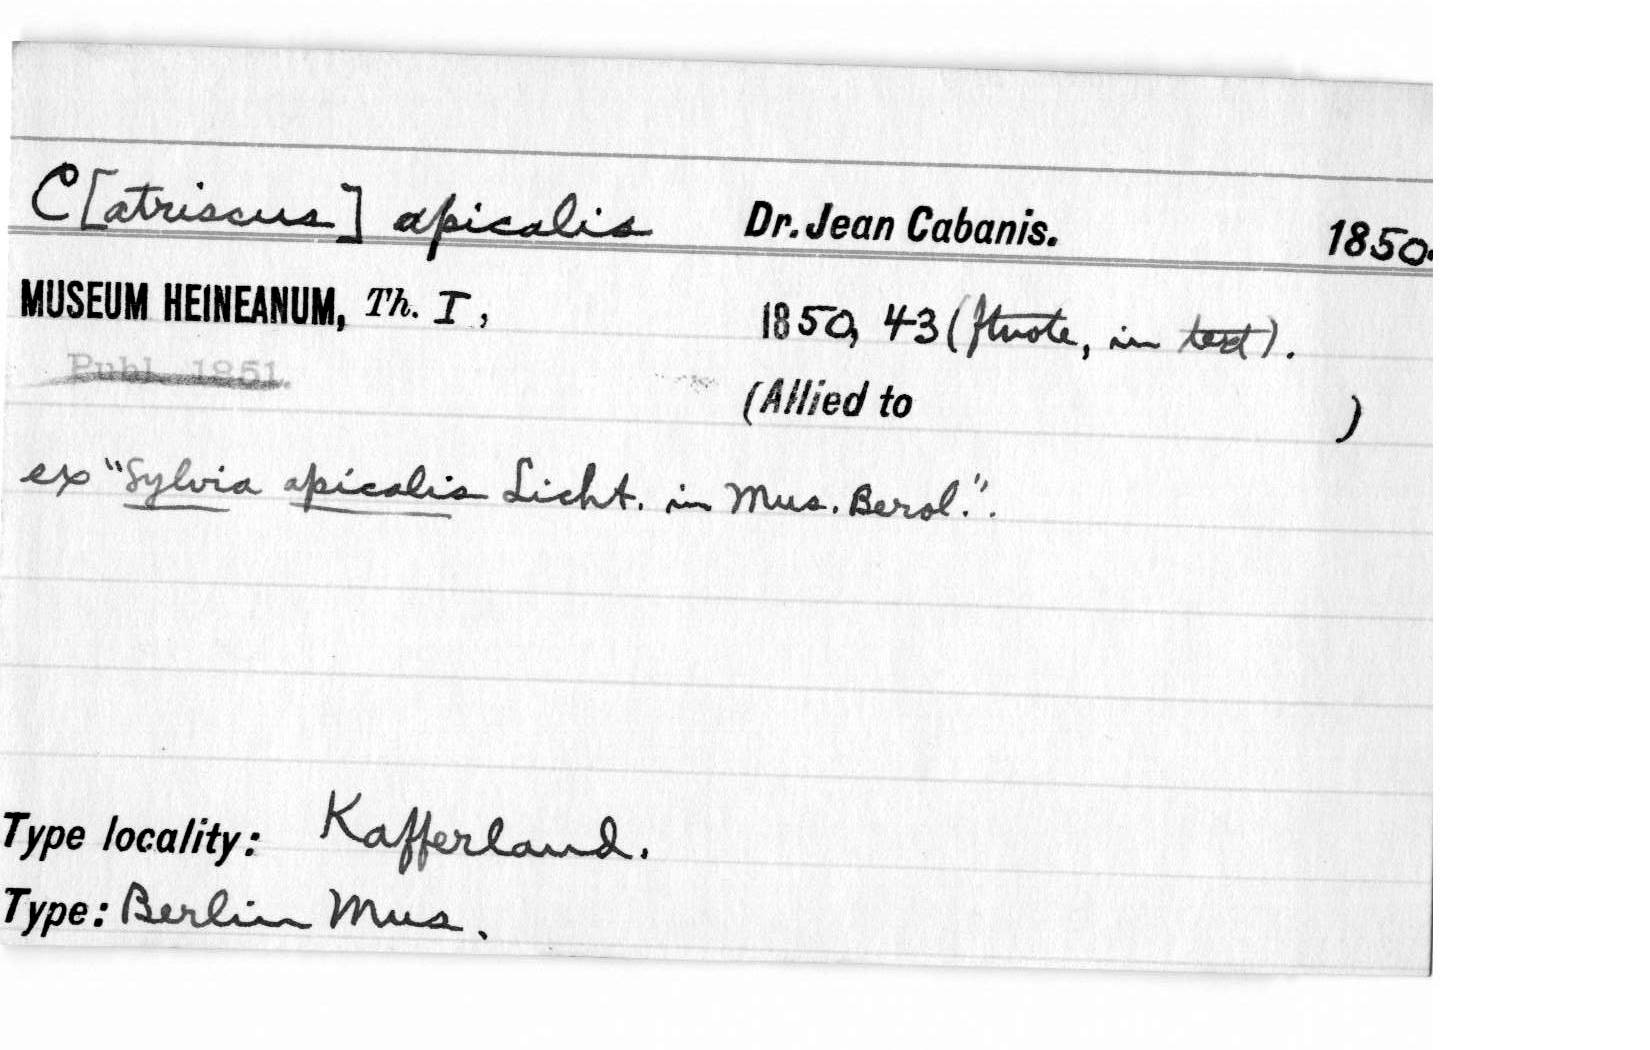 C[atriscus] apicalis Dr. Jean Cabanis. 1850.
MUSEUM HEINEANUM, Th. I, 1850, 43 (ftnote, in text).
Publ. 1851.
(Allied to )
ex "Sylvia apicalis Licht. in Mus. Berol.".
Type locality: Kafferland.
Type: Berlin Mus.